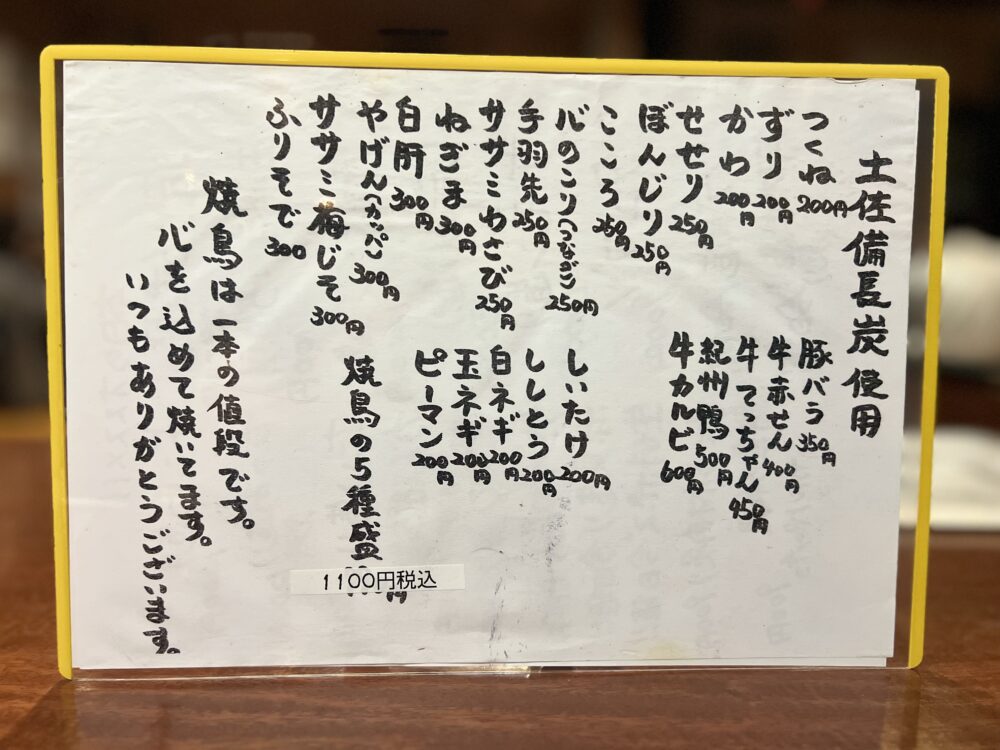 土佐備長炭使用
つくね 200円
ずり 200円
かわ 200円
せせり 250円
ぼんじり 250円
こころ 250円
心のこり(つなぎ) 250円
手羽先 250円
ササミわさび 250円
ねぎま 300円
白肝 300円
やげん(カッパ) 300円
ササミ梅じそ 300円
ふりそで 300
豚バラ 350円
牛赤せん 400円
牛てっちゃん 450円
紀州鴨 500円
牛カルビ 600円
しいたけ 200円
ししとう 200円
白ネギ 200円
玉ネギ 200円
ピーマン 200円
焼鳥の5種盛
1100円税込
焼鳥は一本の値段です。
心を込めて焼いてます。
いつもありがとうございます。